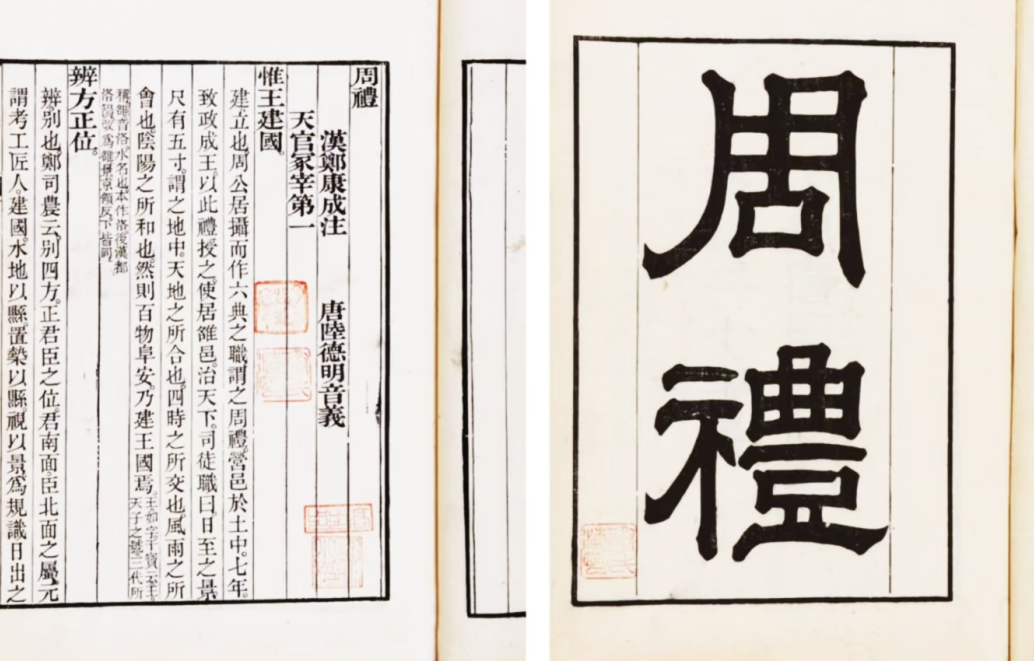 周禮
漢鄭康成注 唐陸德明音義
天官冢宰第一
惟王建國。
建立也。周公居攝而作六典之職謂之周禮。營邑於土中。七年。
致政成王。以此禮授之。使居雒邑。治天下。司徒職曰。日至之景
尺有五寸。謂之地中。天地之所合也。四時之所交也。風雨之所
會也。陰陽之所和也。然則百物阜安乃建王國焉。
辨方正位。
辨。別也。鄭司農云。別四方。正君臣之位。君南面。臣北面之屬。元
謂考工匠人。建國。水地以縣。置槷以縣。視以景。爲規識日出之
周
禮